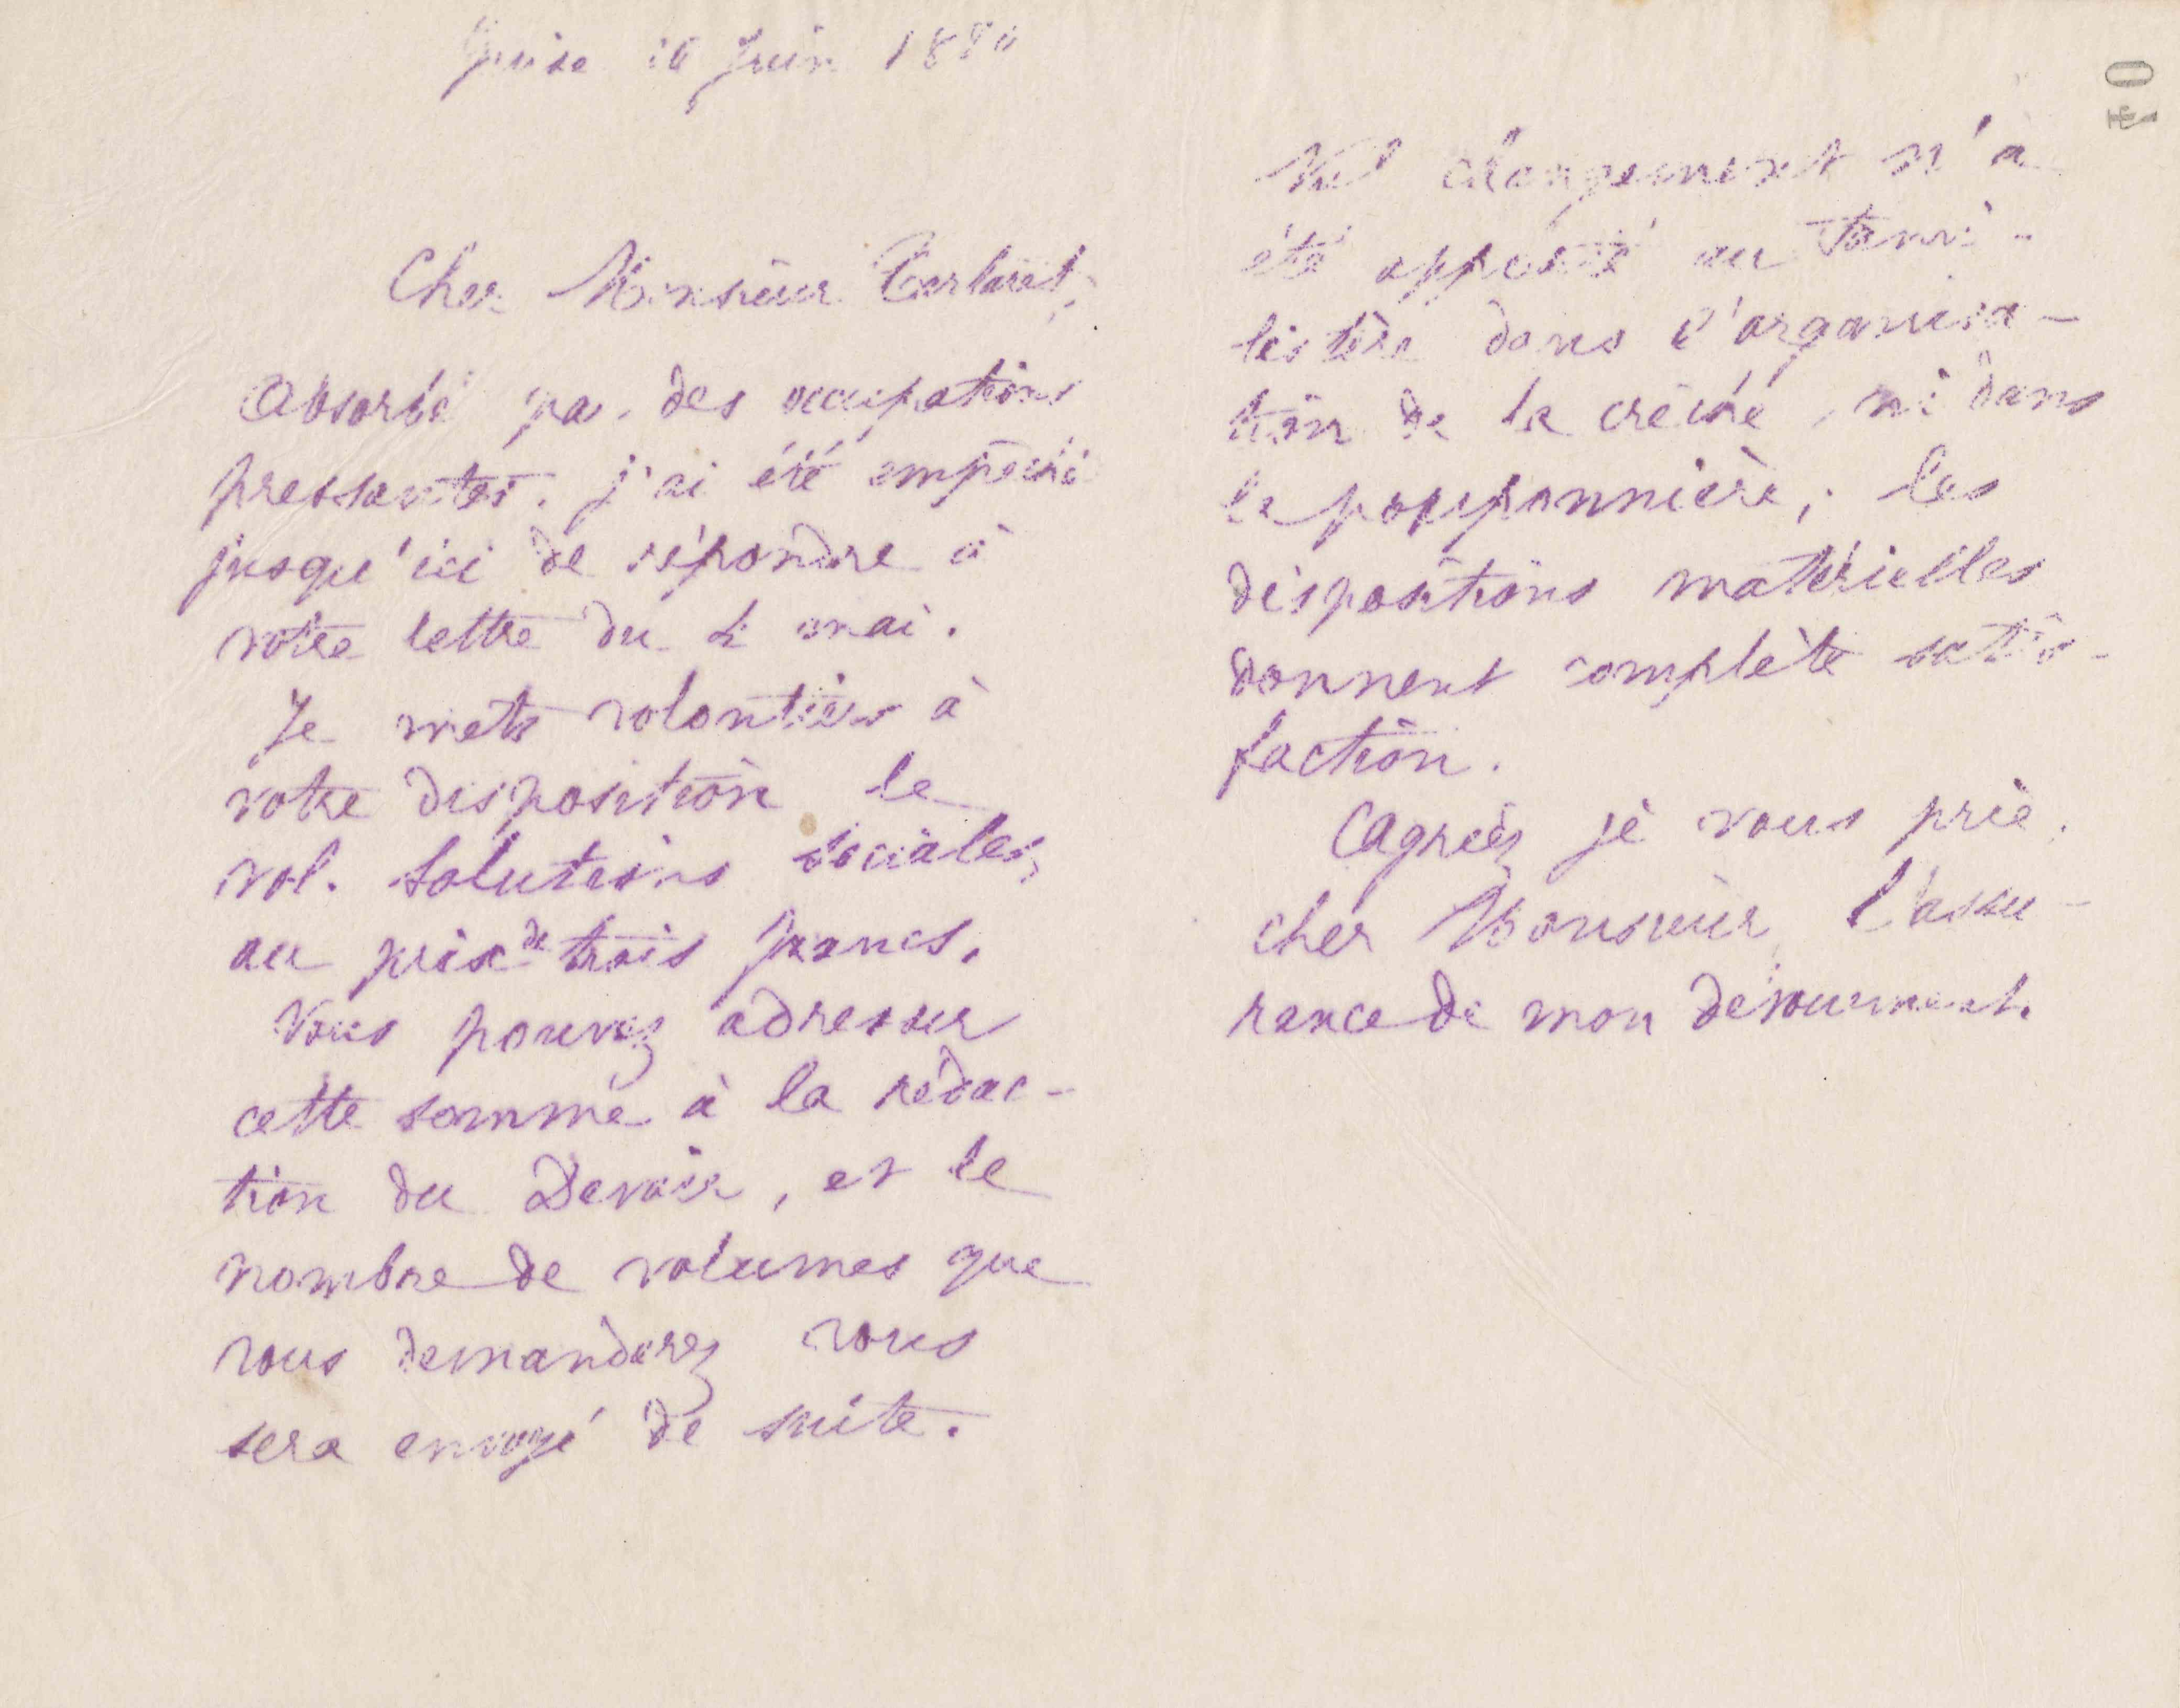 Guise 16 Juin 1880
Cher Monsieur Tartaret,
Absorbé par des occupations
pressantes, j'ai été empêché
jusqu'ici de répondre à
votre lettre du 2 mai.
Je mets volontiers à
votre disposition le
vol. Solutions sociales,
au prix de trois francs.
Vous pouvez adresser
cette somme à la rédac-
tion du Devoir, et le
nombre de volumes que
vous demanderez vous
sera envoyé de suite.
40
Nul changement n'a
été apporté au Fami-
listère dans l'organisa-
tion de la crèche, ni dans
la pouponnière; les
dispositions matérielles
donnent complète satis-
faction.
Agréez je vous prie,
cher Monsieur, l'assu-
rance de mon dévouement.